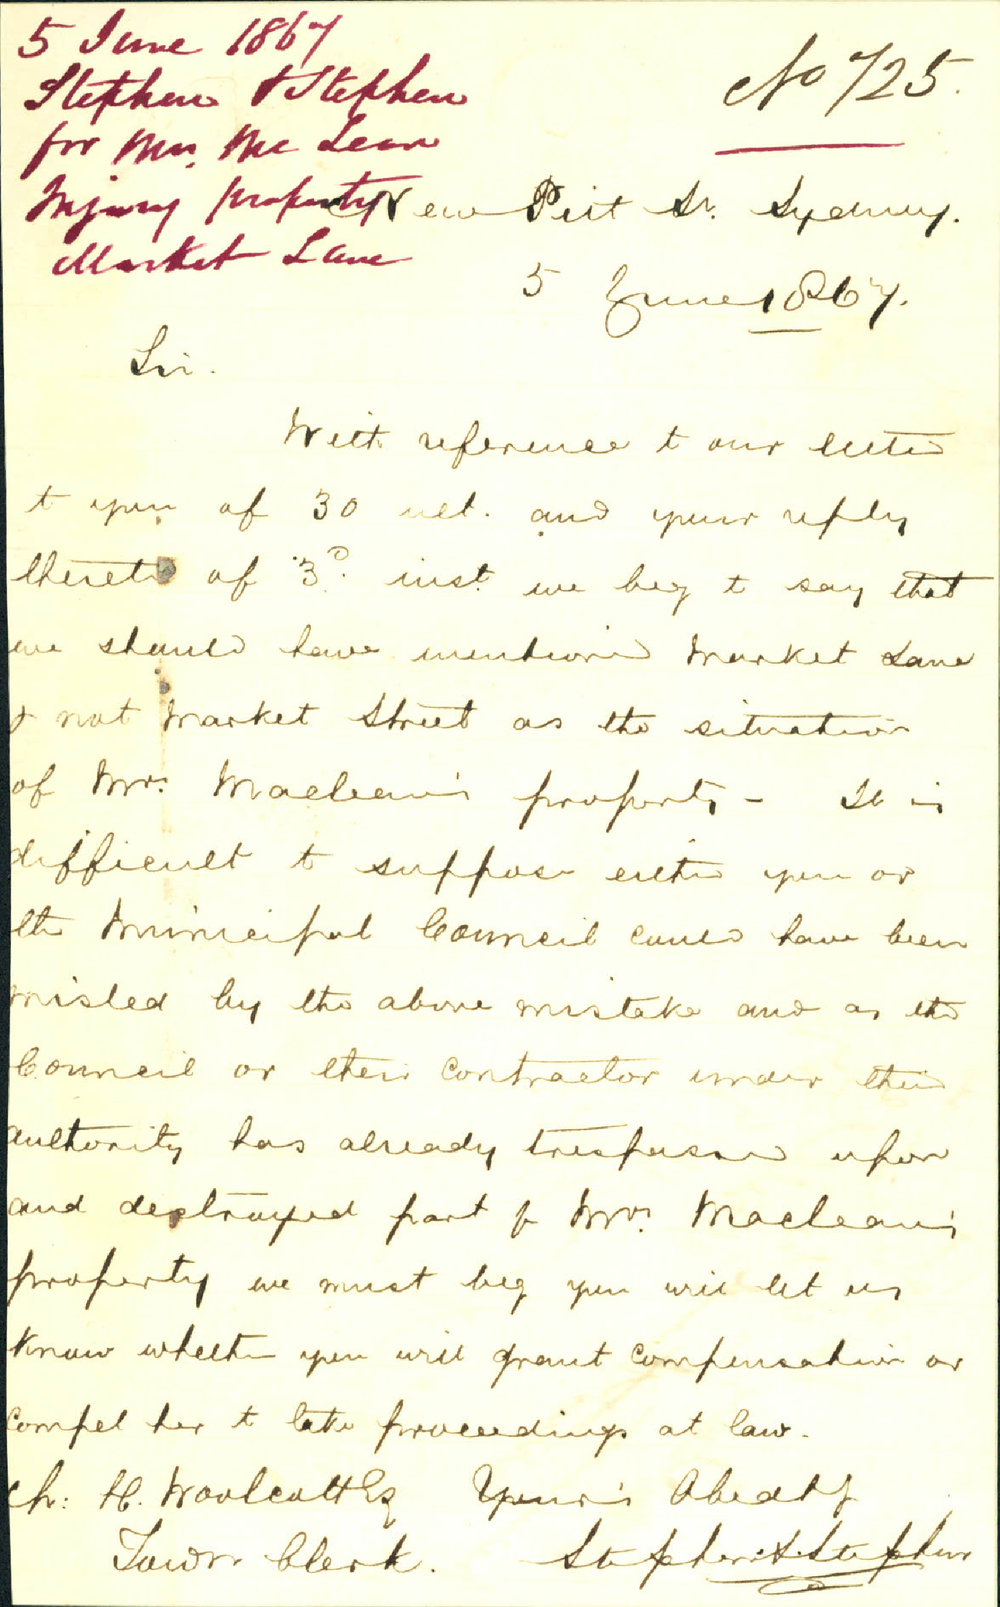 5 June 1867
Stephen & Stephen
for Mrs. Mc Lean
Injury property
Market Lane
No 725.
New Pitt St. Sydney.
5 June 1867.
Sir.
With reference to our letter
to you of 30 ult. and your reply
thereto of 3d. inst. we beg to say that
we should have mentioned Market Lane
& not Market Street as the situation
of Mrs. Maclean's property - It is
difficult to suppose either you or
the Municipal Council could have been
misled by the above mistake and as the
Council or their contractor under their
authority has already trespassed upon
and destroyed part of Mrs. Maclean's
property we must beg you will let us
know whether you will grant compensation or
compel her to take proceedings at law.
Ch: H. Woolcott Esq Yours Obedtly
Town Clerk. Stephen & Stephen